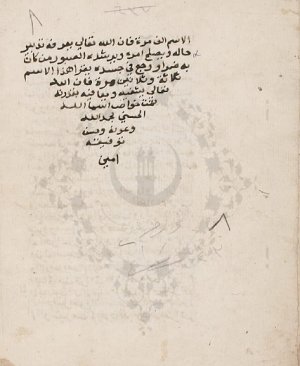 الاسم الف مرة فان الله تعالى يعرفه تدبير
حاله ويصلح امره وبرشده الصبور من كان
به ضر او وجع في جسده يقرا هذا الاسم
ثلاثة وثلاثين مرة فان الله
تعالى يشفيه ويعافيه بقدرته
تمت خواص اسما الله
الحسنى بحمد الله
وعونه وحسن
توفيقه
امين